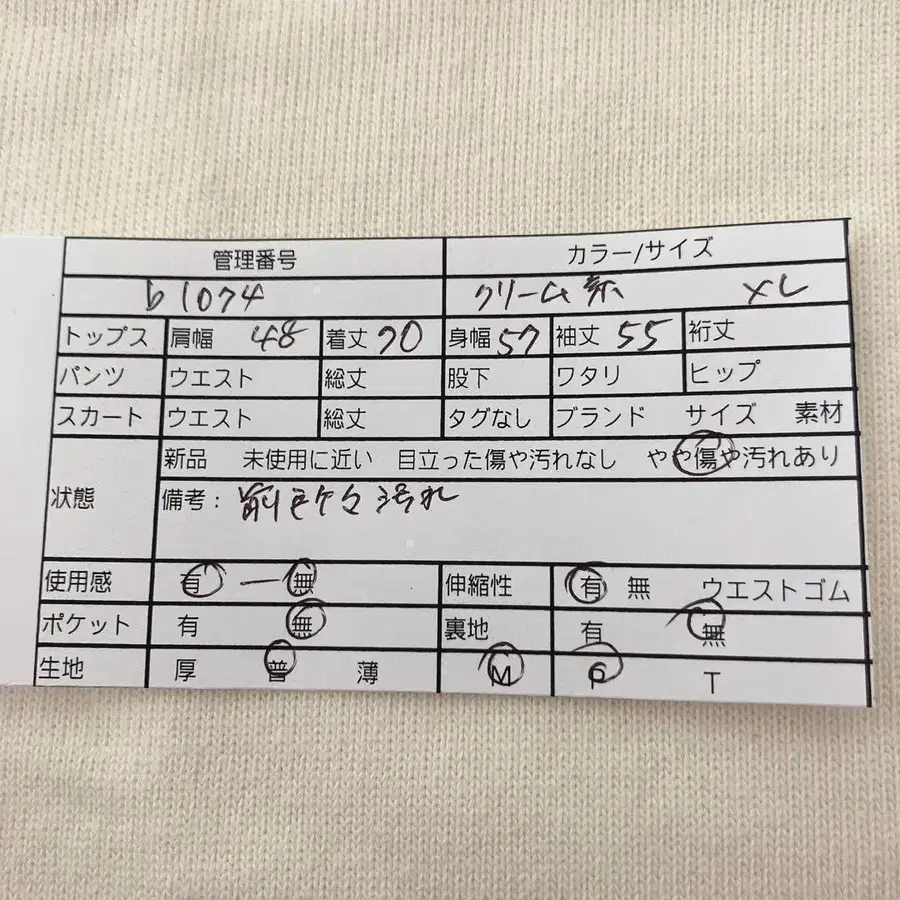 管理番号 カラー/サイズ
b1074 クリーム系 XL
トップス 肩幅 48 着丈 70 身幅 57 袖丈 55 裄丈
パンツ ウエスト 総丈 股下 ワタリ ヒップ
スカート ウエスト 総丈 タグなし ブランド サイズ 素材
新品 未使用に近い 目立った傷や汚れなし やや傷や汚れあり
状態 備考: 汚れ
使用感 有 ― 無 伸縮性 有 無 ウエストゴム
ポケット 有 無 裏地 有 無
生地 厚 普 薄 M P T